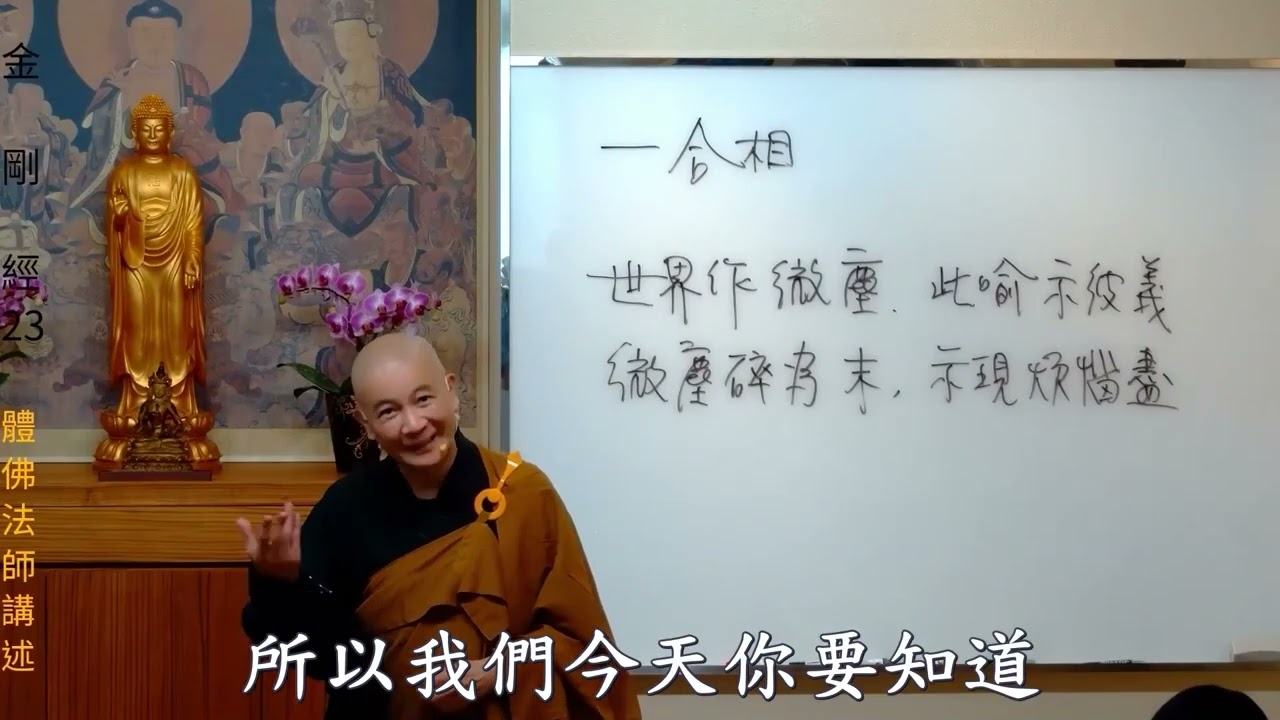 金剛經23
體佛法師講述
一合相
世界作微塵.此喻示彼義
微塵碎為末,示現煩惱盡
所以我們今天你要知道